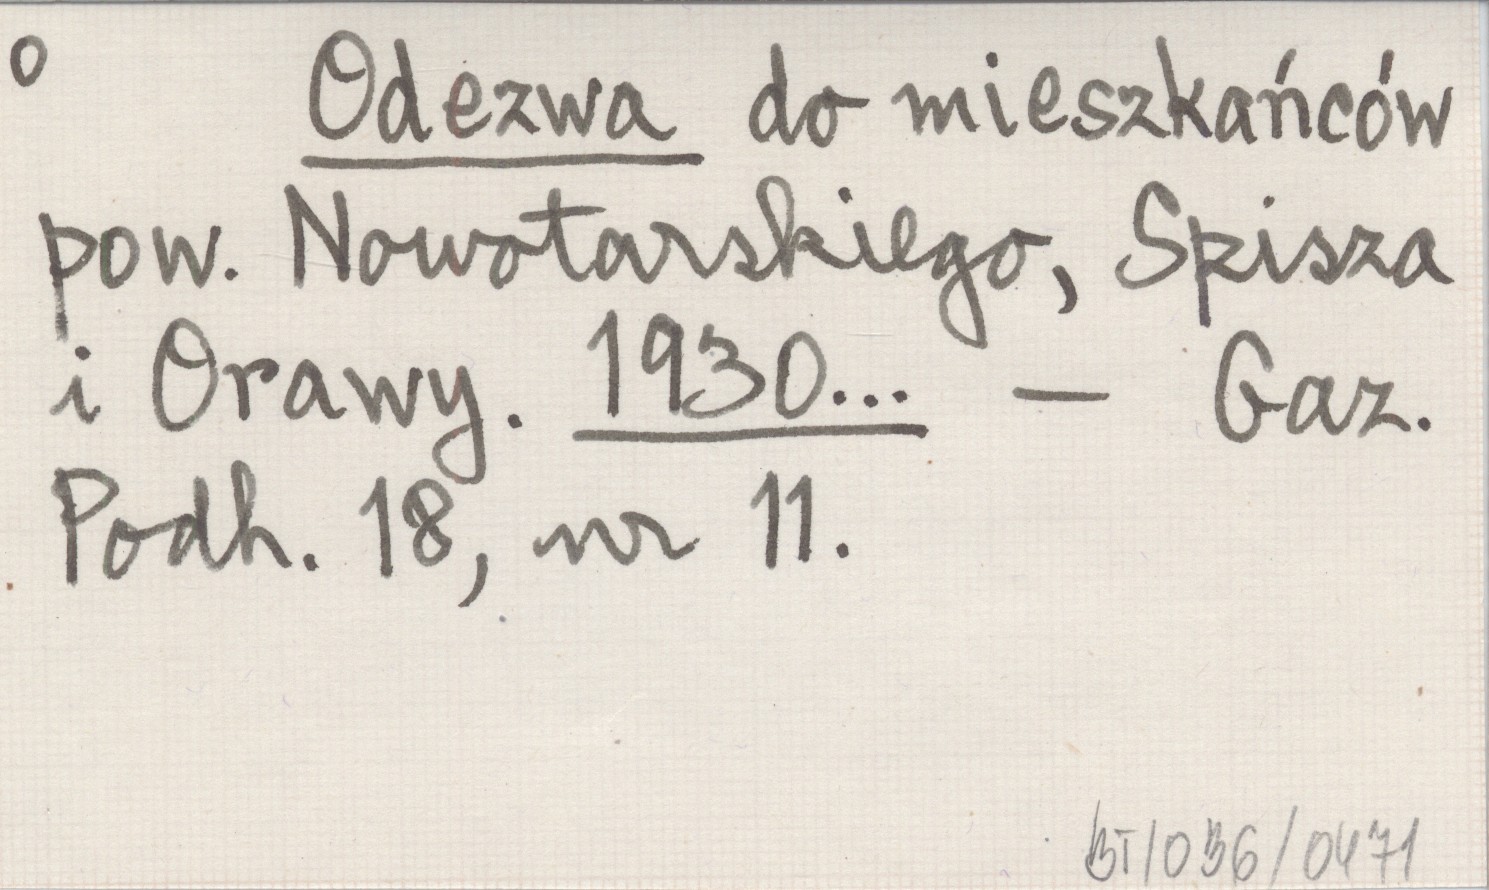 o Odezwa do mieszkańców
pow. Nowotarskiego, Spisza
i Orawy. 1930... — Gaz.
Podh. 18, nr 11.
BT/036/0471